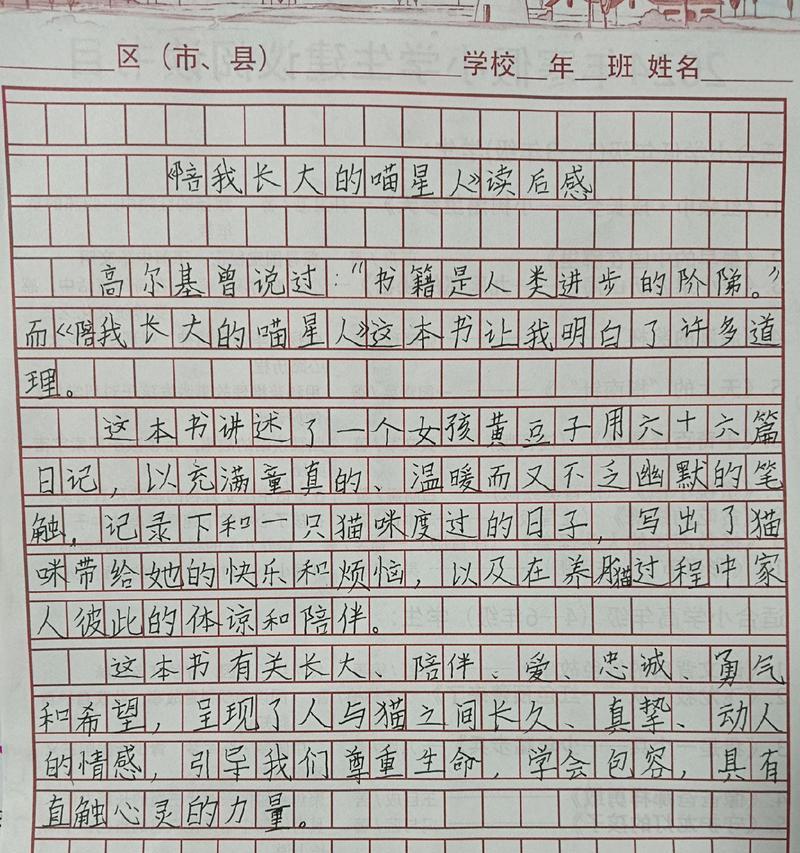 区（市、县） 学校 年 班 姓名
《陪我长大的喵星人》读后感
高尔基曾说过："书籍是人类进步的阶梯。"
而《陪我长大的喵星人》这本书让我明白了许多道
理。
这本书讲述了一个女孩黄豆子用六十六篇
日记，以充满童真的、温暖而又不乏幽默的笔
触，记录下和一只猫咪度过的日子，写出了猫
咪带给她的快乐和烦恼，以及在养猫过程中家
人彼此的体谅和陪伴。
这本书有关长大、陪伴、爱、忠诚、勇气
和希望，呈现了人与猫之间长久、真挚、动人
的情感，引导我们尊重生命，学会包容，具有
直触心灵的力量。